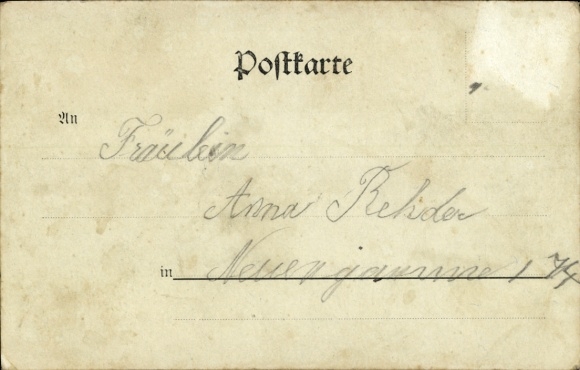 Postkarte
An
Fräulein
Anna Rehder
in Neuengamme 174